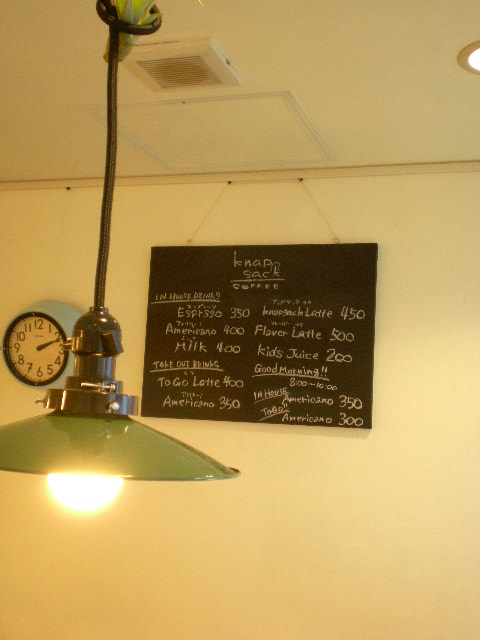 knap
sack
COFFEE
IN HOUSE DRINKS
エスプレッソ
Espresso 350
アメリカーノ
Americano 400
Milk 400
TAKE OUT DRINKS
ToGo Latte 400
アメリカーノ
Americano 350
ナップサック ラテ
knapsack Latte 450
フレーバー ラテ
Flaver Latte 500
Kids Juice 200
Good Morning!!
8:00~10:00
IN HOUSE Americano 350
ToGo Americano 300
12
1
2
3
4
5
6
7
8
9
10
11